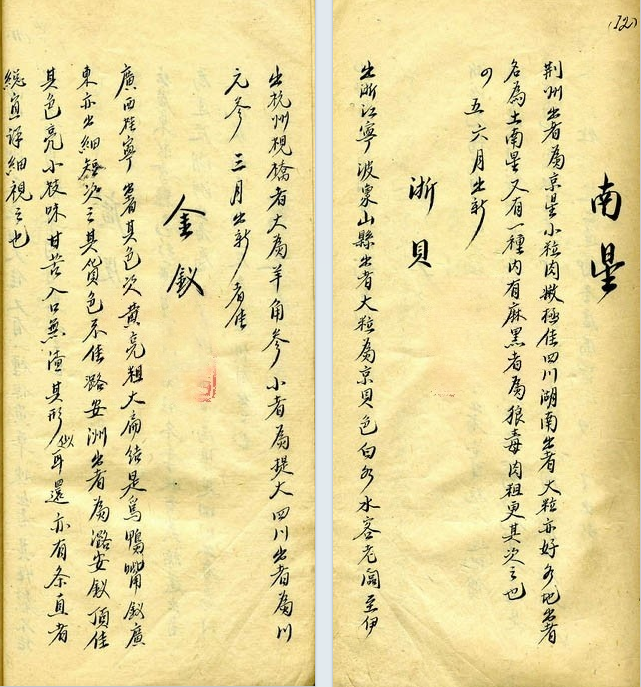 (32)
南星
荆州出者為京星小粒肉嫩極佳四川湖南出者大粒亦好各地出者
名為土南星又有一種内有麻黑者為狼毒肉粗更其次之也
四五六月出新
浙貝
出浙江寧波象山縣出者大粒為京貝色白水客老闆至伊
出杭州梘橋者大為羊角参小者為提大四川出者為川
元参 三月出新 者佳
金釵
廣西桂寧出者其色次黄亮粗大扁結是烏鴨嘴釵廣
東亦出細短次之其貨色不佳潞安洲出者為潞安釵頂佳
其色亮小枝味甘苦入口無渣其形似耳還亦有条直者
總宜詳細視之也